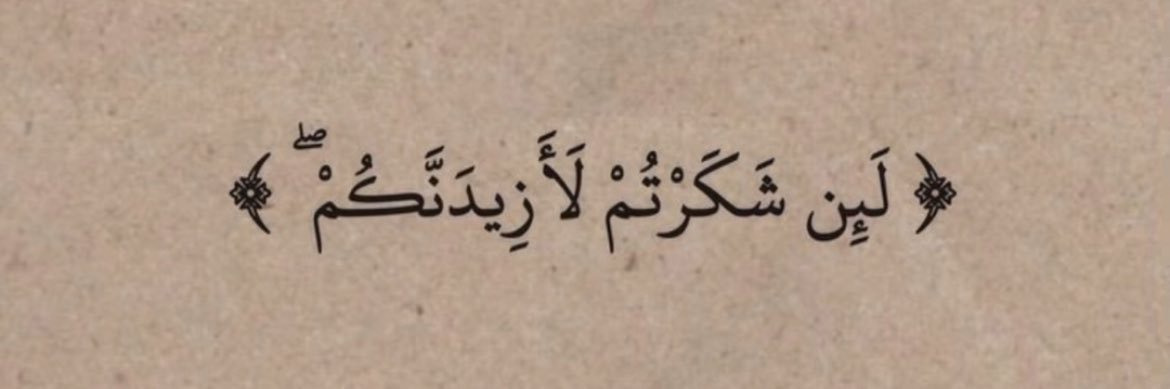 ﴿ لَئِن شَكَرْتُمْ لَأَزِيدَنَّكُمْ ۖ ﴾